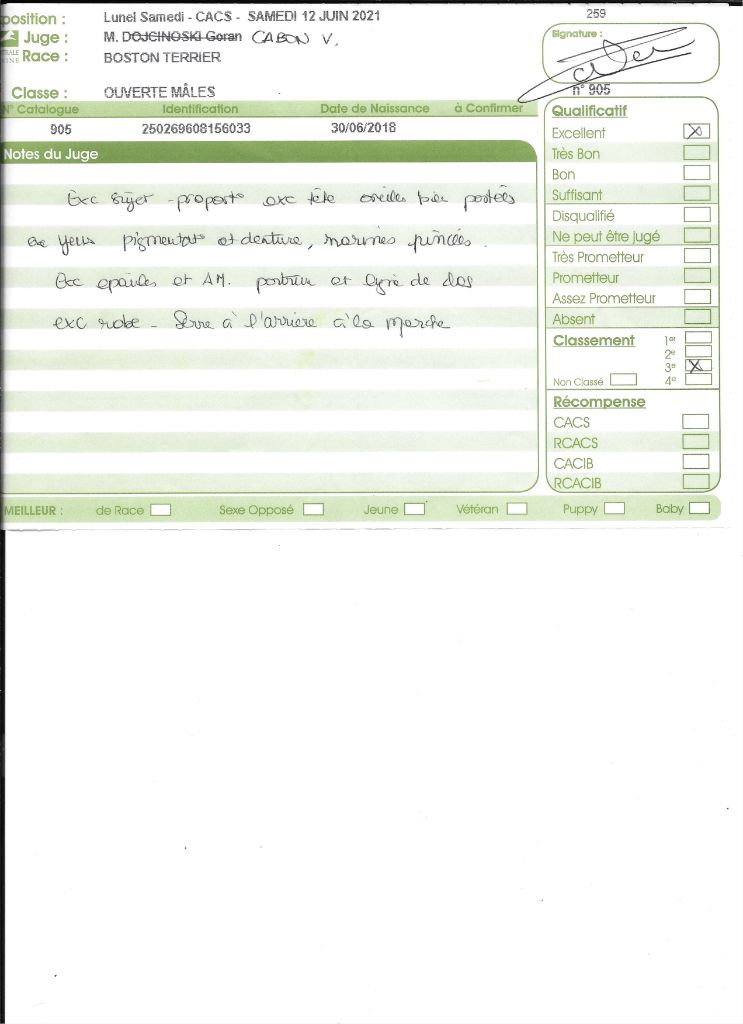 position :
Lunel Samedi - CACS - SAMEDI 12 JUIN 2021
259
Juge :
M. DOJCINOSKI Goran CABON V.
Signature :
Race :
BOSTON TERRIER
Classe :
OUVERTE MÂLES
n° 905
N° Catalogue Identification Date de Naissance à Confirmer
905 250269608156033 30/06/2018
Notes du Juge
Exc sujet - proport° exc tête oreilles bien portées
exc yeux pigmentat° et denture, narines pincées.
Exc epaules et AM. poitrine et ligne de dos
exc robe - Serre à l'arriere à la marche
Qualificatif
Excellent X
Très Bon
Bon
Suffisant
Disqualifié
Ne peut être jugé
Très Prometteur
Prometteur
Assez Prometteur
Absent
Classement 1er
2e
3e X
Non Classé 4e
Récompense
CACS
RCACS
CACIB
RCACIB
MEILLEUR : de Race Sexe Opposé Jeune Vétéran Puppy Baby